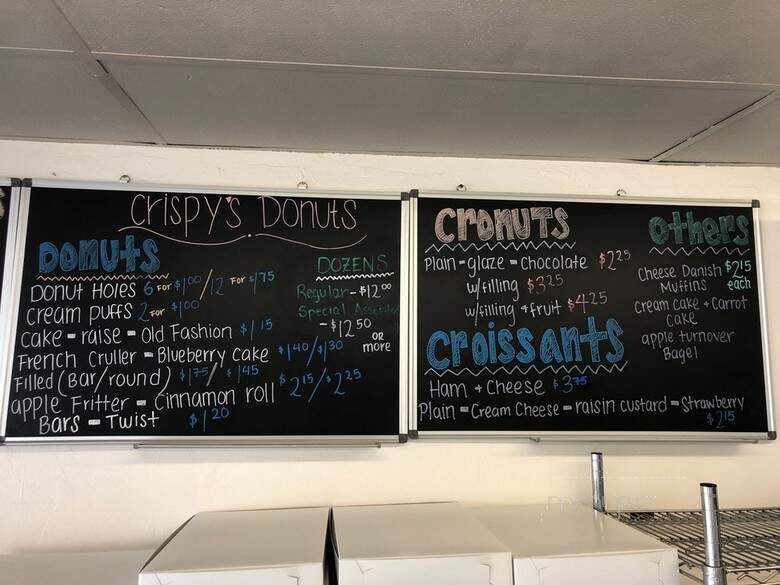 Crispy's Donuts
Donuts
Donut Holes 6 for $1.00 / 12 for $1.75
Cream Puffs 2 for $1.00
Cake - raise - Old Fashion $1.15
French Cruller - Blueberry Cake $1.40/$1.30
Filled (Bar/round) $1.75/$1.45
apple Fritter - Cinnamon roll $2.15/$2.25
Bars - Twist $1.20
DOZENS
Regular - $12.00
Special
- $12.50
or
more
CRONUTS
Plain - glaze - Chocolate $2.25
w/filling $3.25
w/filling + fruit $4.25
Croissants
Ham + Cheese $3.75
Plain - Cream Cheese - raisin custard - Strawberry
$2.15
Others
Cheese Danish $2.15
Muffins each
Cream cake + Carrot
Cake
apple turnover
Bagel